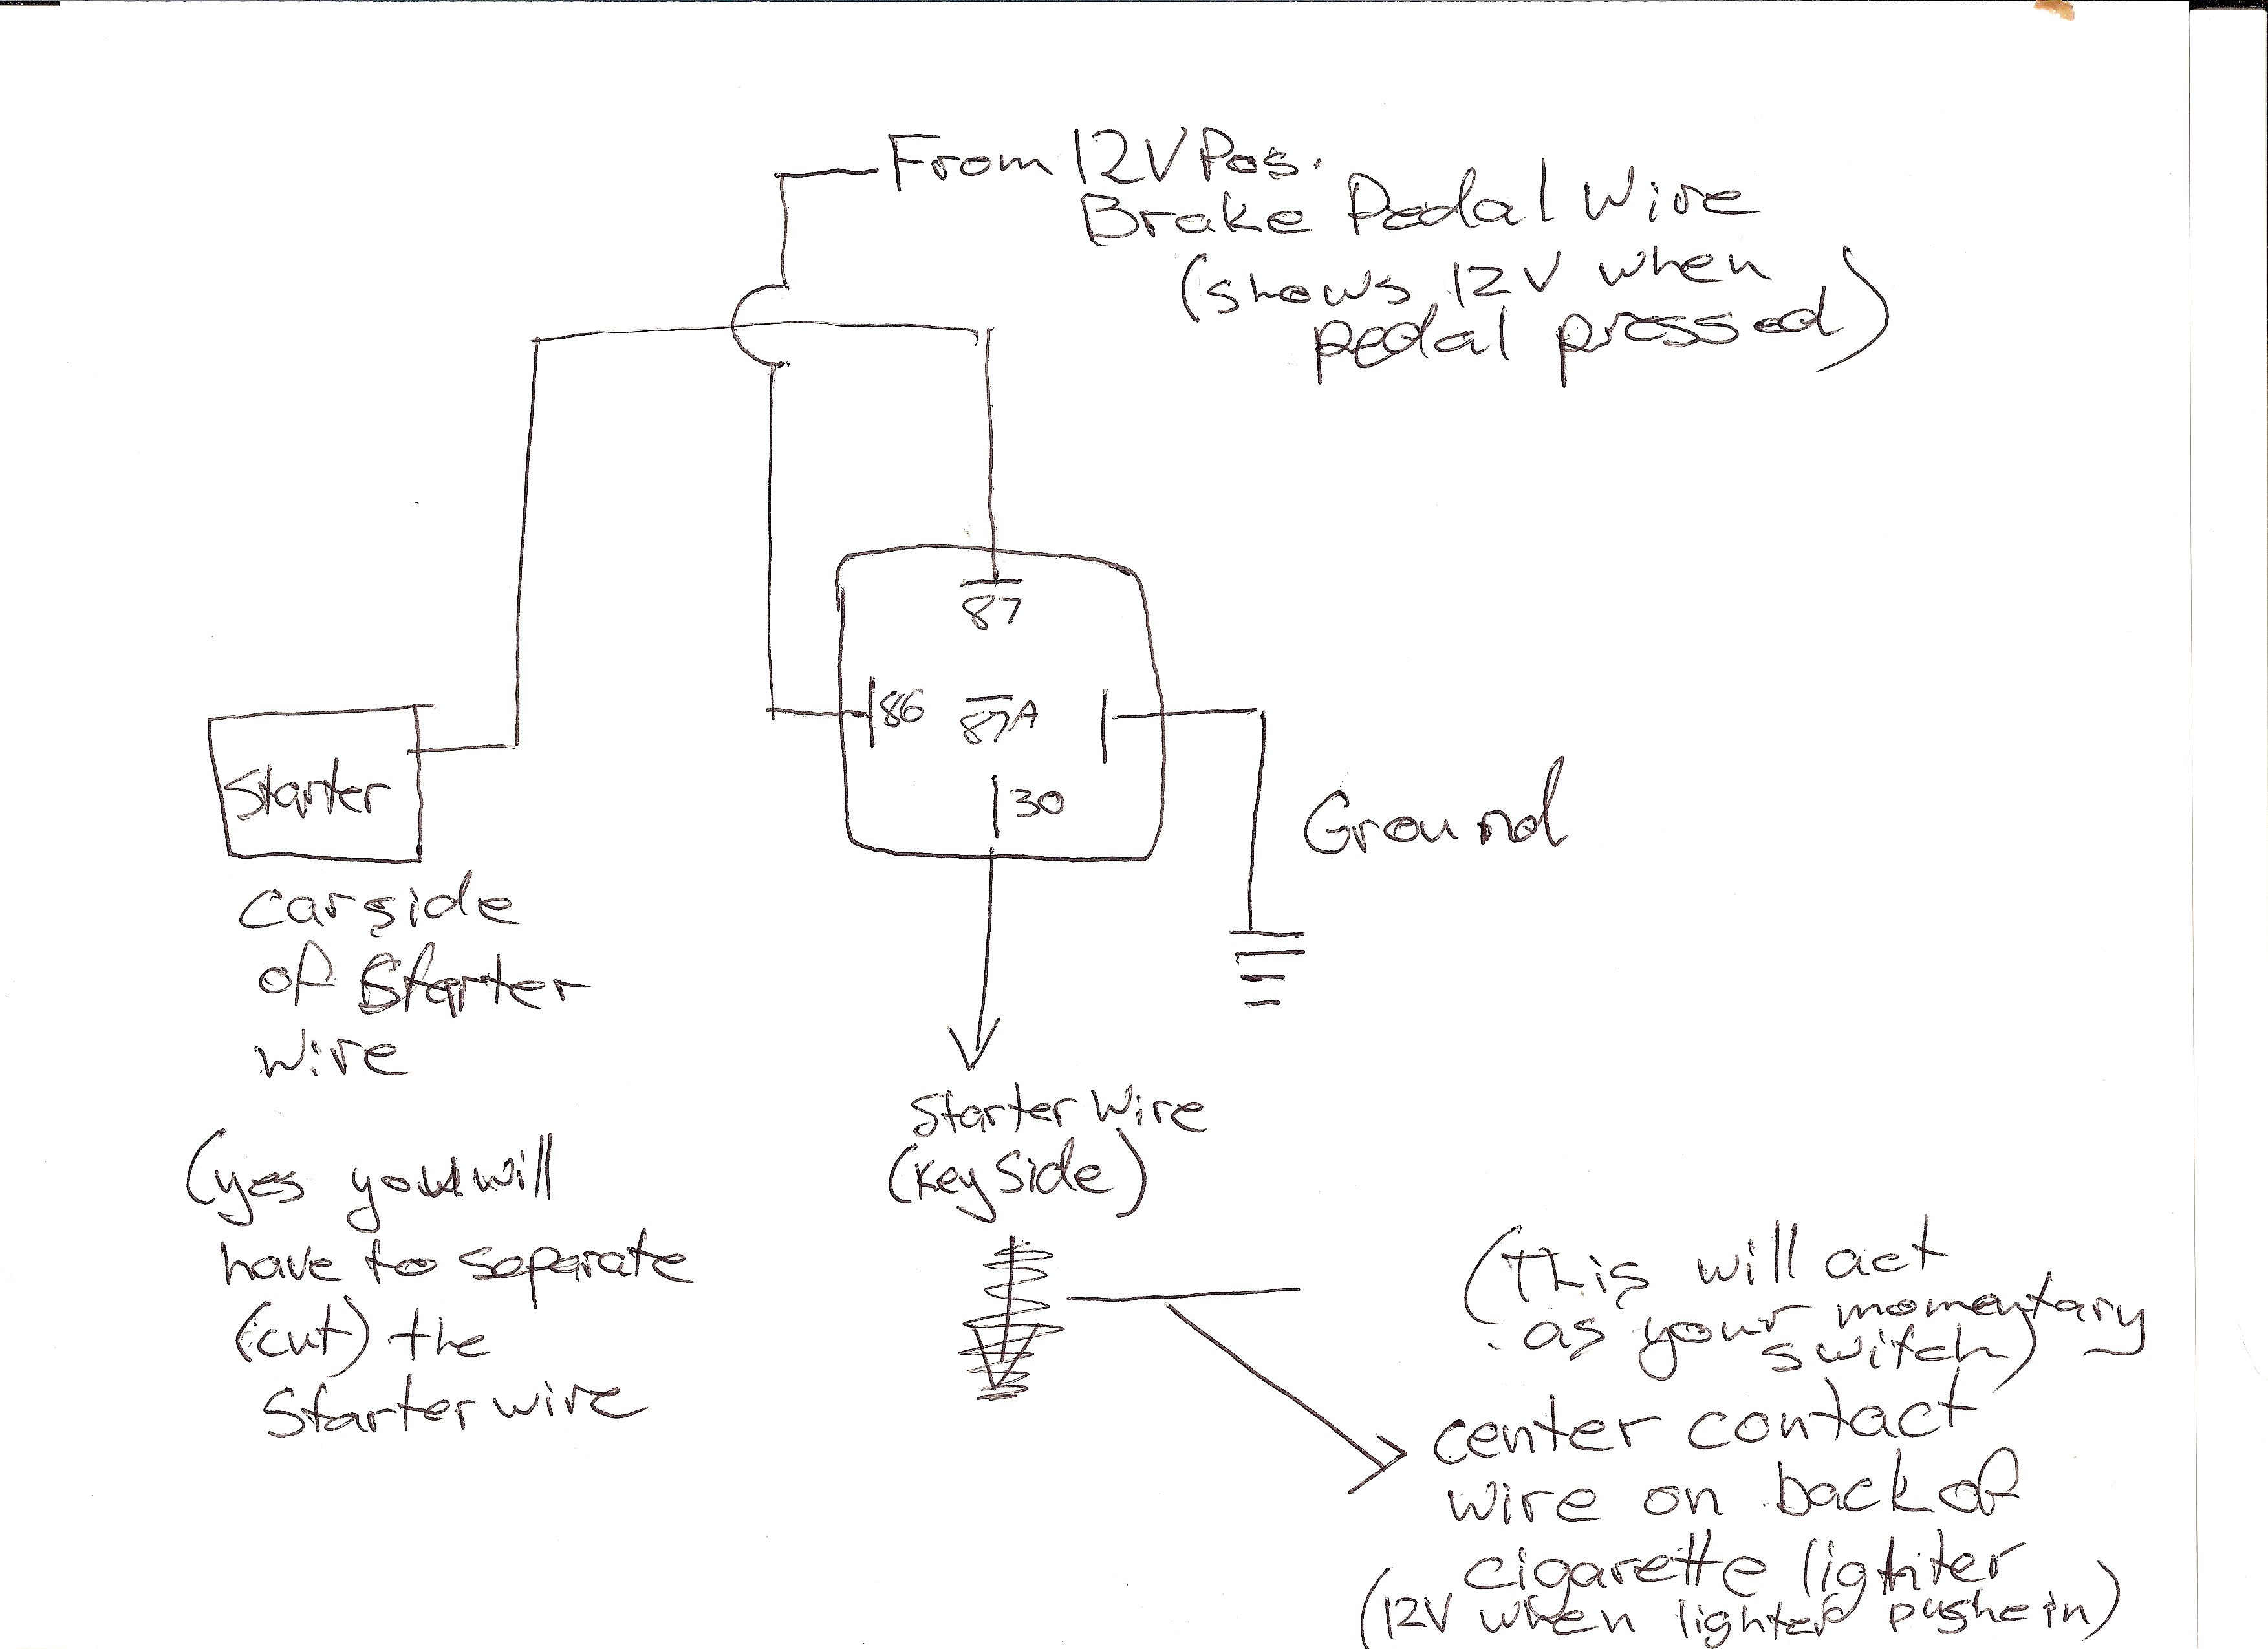 From 12V Pos.
Brake Pedal Wire
(shows 12V when
pedal pressed)
87
86
87A
30
Starter
Ground
carside
of Starter
wire
Starter Wire
(Key Side)
(yes you will
have to separate
(cut) the
Starter wire
(This will act
as your momentary
switch)
center contact
wire on back of
cigarette lighter
(12V when lighter pushe in)